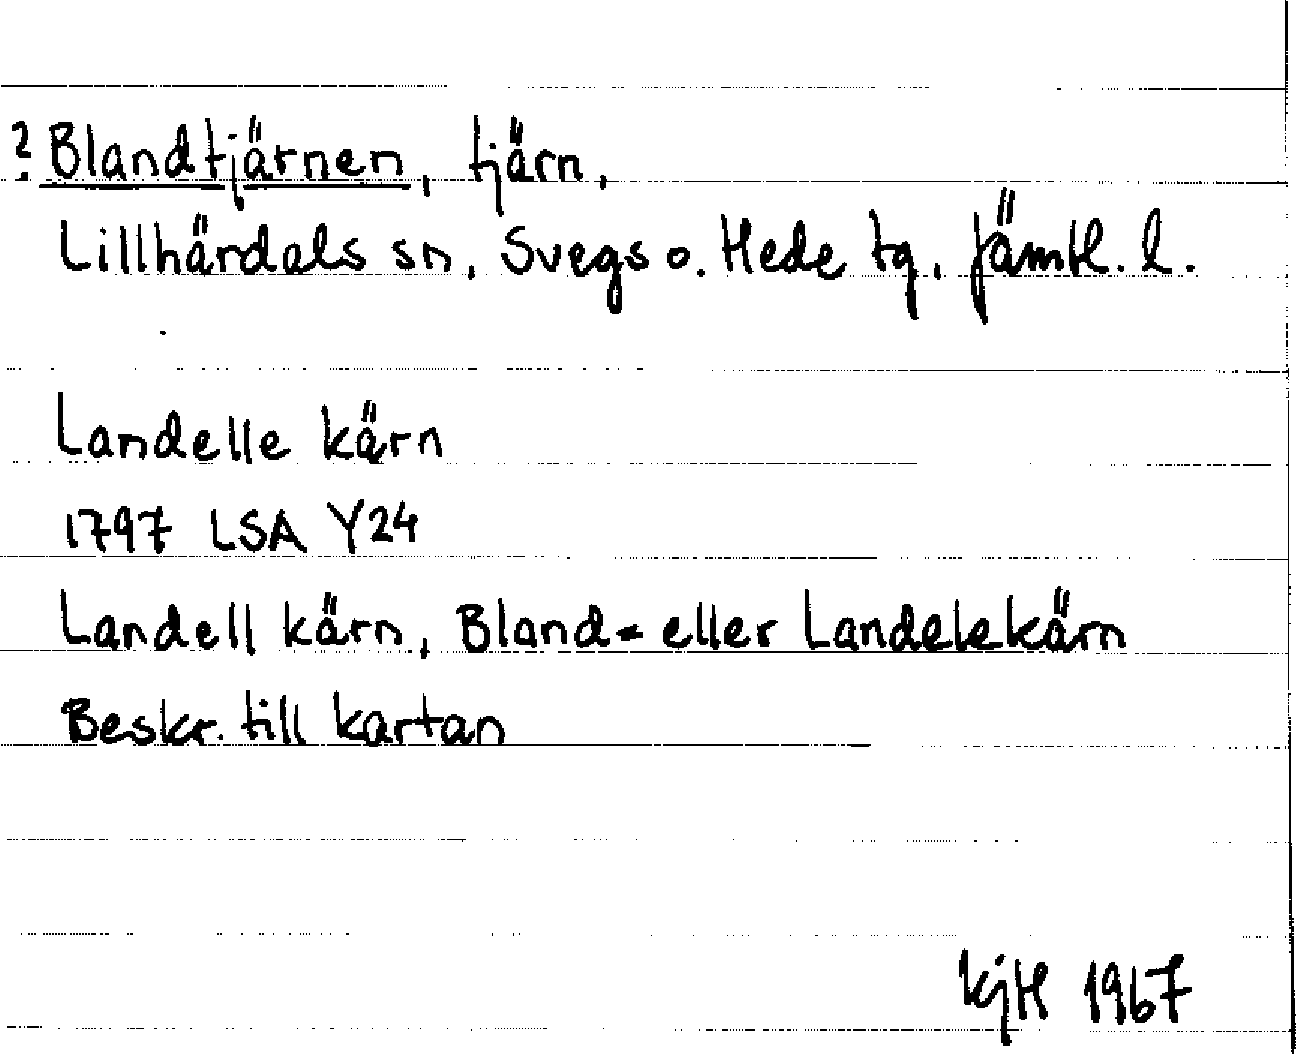 ? Blandtjärnen, tjärn,
Lillhärdals sn, Svegs o. Hede tg, Jämtl. l.
Landelle kärn
1797 LSA Y24
Landell kärn, Bland- eller Landelekärn
Beskr. till kartan
KjH 1967